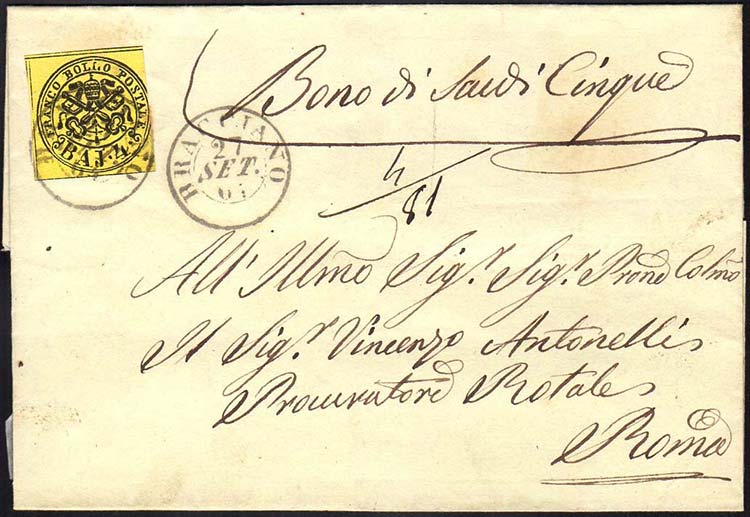 FRANCO BOLLO POSTALE
BAJ. 4
BRACCIANO
21
SET.
Bono di Scudi Cinque
4/81
All' Illmo Sig.r Sig.r Prone Colmo
Il Sig.r Vincenzo Antonelli
Procuratore Rotale
Roma